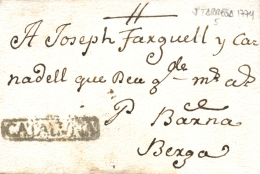 TARREGA 1774
5
A Joseph Farguell y Car
nadell que Deu g.de m.s a.s
P
Barna
Berga
CATALUÑA